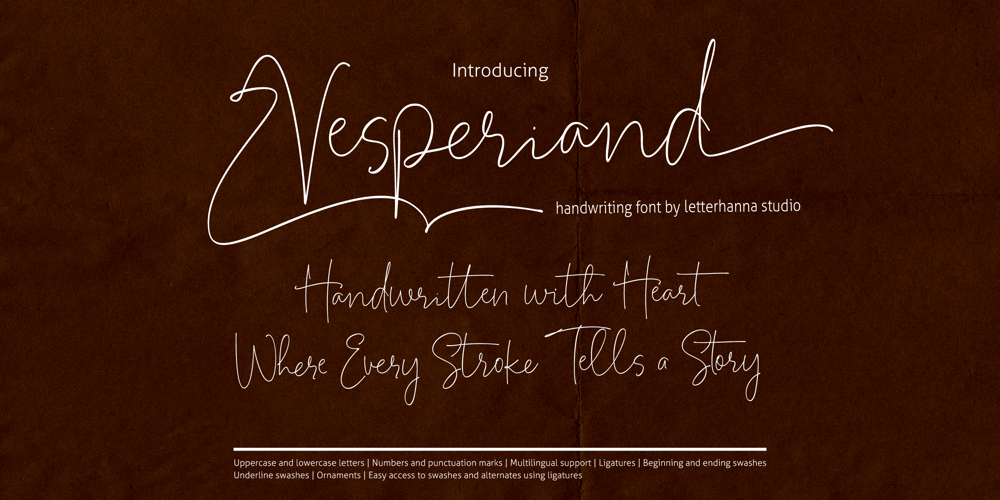 Introducing
Vesperiand
handwriting font by letterhanna studio
Handwritten with Heart
Where Every Stroke Tells a Story
Uppercase and lowercase letters | Numbers and punctuation marks | Multilingual support | Ligatures | Beginning and ending swashes
Underline swashes | Ornaments | Easy access to swashes and alternates using ligatures